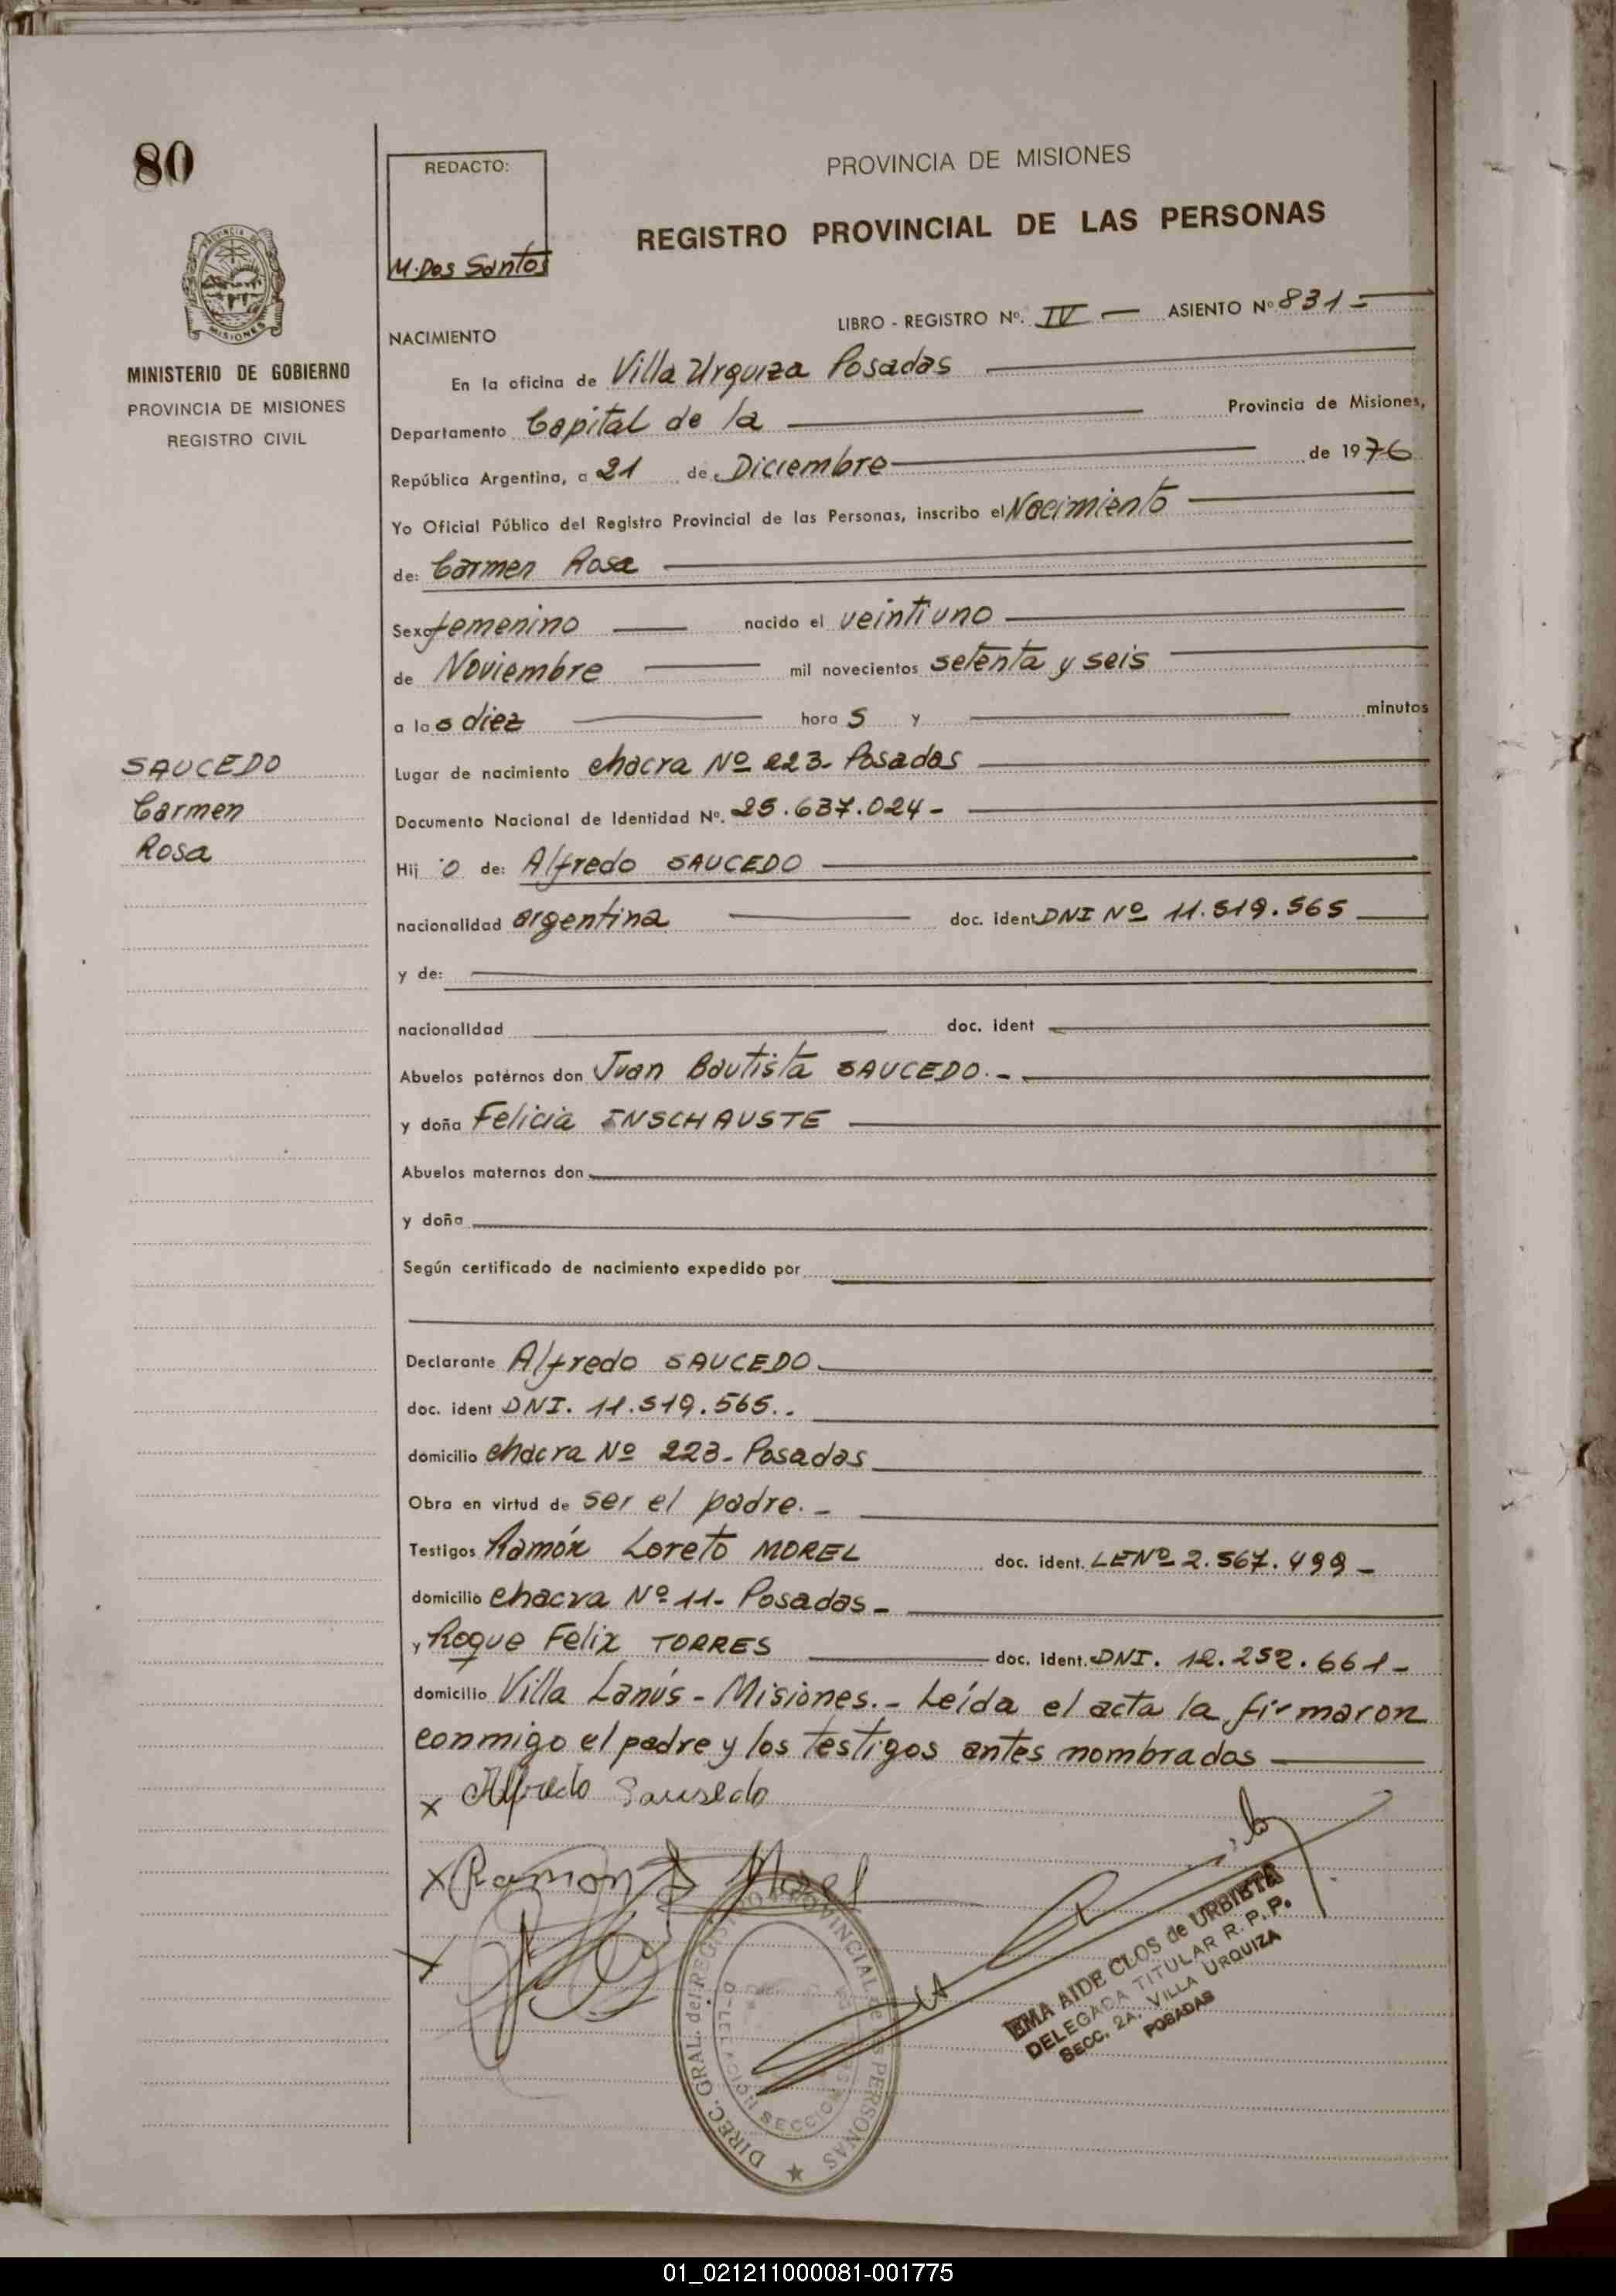 80
REDACTO:
M. Dos Santos
PROVINCIA DE MISIONES
REGISTRO PROVINCIAL DE LAS PERSONAS
MINISTERIO DE GOBIERNO
PROVINCIA DE MISIONES
REGISTRO CIVIL
LIBRO - REGISTRO Nº. IV — ASIENTO Nº 831 =
NACIMIENTO
En la oficina de Villa Urquiza Posadas
Departamento Capital de la Provincia de Misiones,
República Argentina, a 21 de Diciembre de 1976
Yo Oficial Público del Registro Provincial de las Personas, inscribo el Nacimiento
de: Carmen Rosa
Sexo femenino nacido el veintiuno
de Noviembre mil novecientos setenta y seis
a las diez hora s y minutos
SAUCEDO
Carmen
Rosa
Lugar de nacimiento chacra Nº 223- Posadas
Documento Nacional de Identidad Nº. 25.637.024 -
Hij o de: Alfredo SAUCEDO
nacionalidad argentina doc. ident DNI Nº 11.519.565
y de:
nacionalidad doc. ident
Abuelos patérnos don Juan Bautista SAUCEDO.-
y doña Felicia INSCHAUSTE
Abuelos maternos don
y doña
Según certificado de nacimiento expedido por
Declarante Alfredo SAUCEDO
doc. ident DNI. 11.519.565..
domicilio chacra Nº 223- Posadas
Obra en virtud de ser el padre. -
Testigos Ramón Loreto MOREL doc. ident. LE Nº 2.567.499 -
domicilio chacra Nº 11- Posadas -
y Roque Felix TORRES doc. ident. DNI. 12.252.661 -
domicilio Villa Lanús - Misiones. - Leída el acta la firmaron
conmigo el padre y los testigos antes nombrados
x Alfredo Sausedo
x Ramon L Morel
x
EMA AIDE CLOS de URBIETA
DELEGADA TITULAR R. P. P.
SECC. 2A. VILLA URQUIZA
POSADAS
DIREC. GRAL. del REGISTRO PROVINCIAL de las PERSONAS
SECCION
01_021211000081-001775